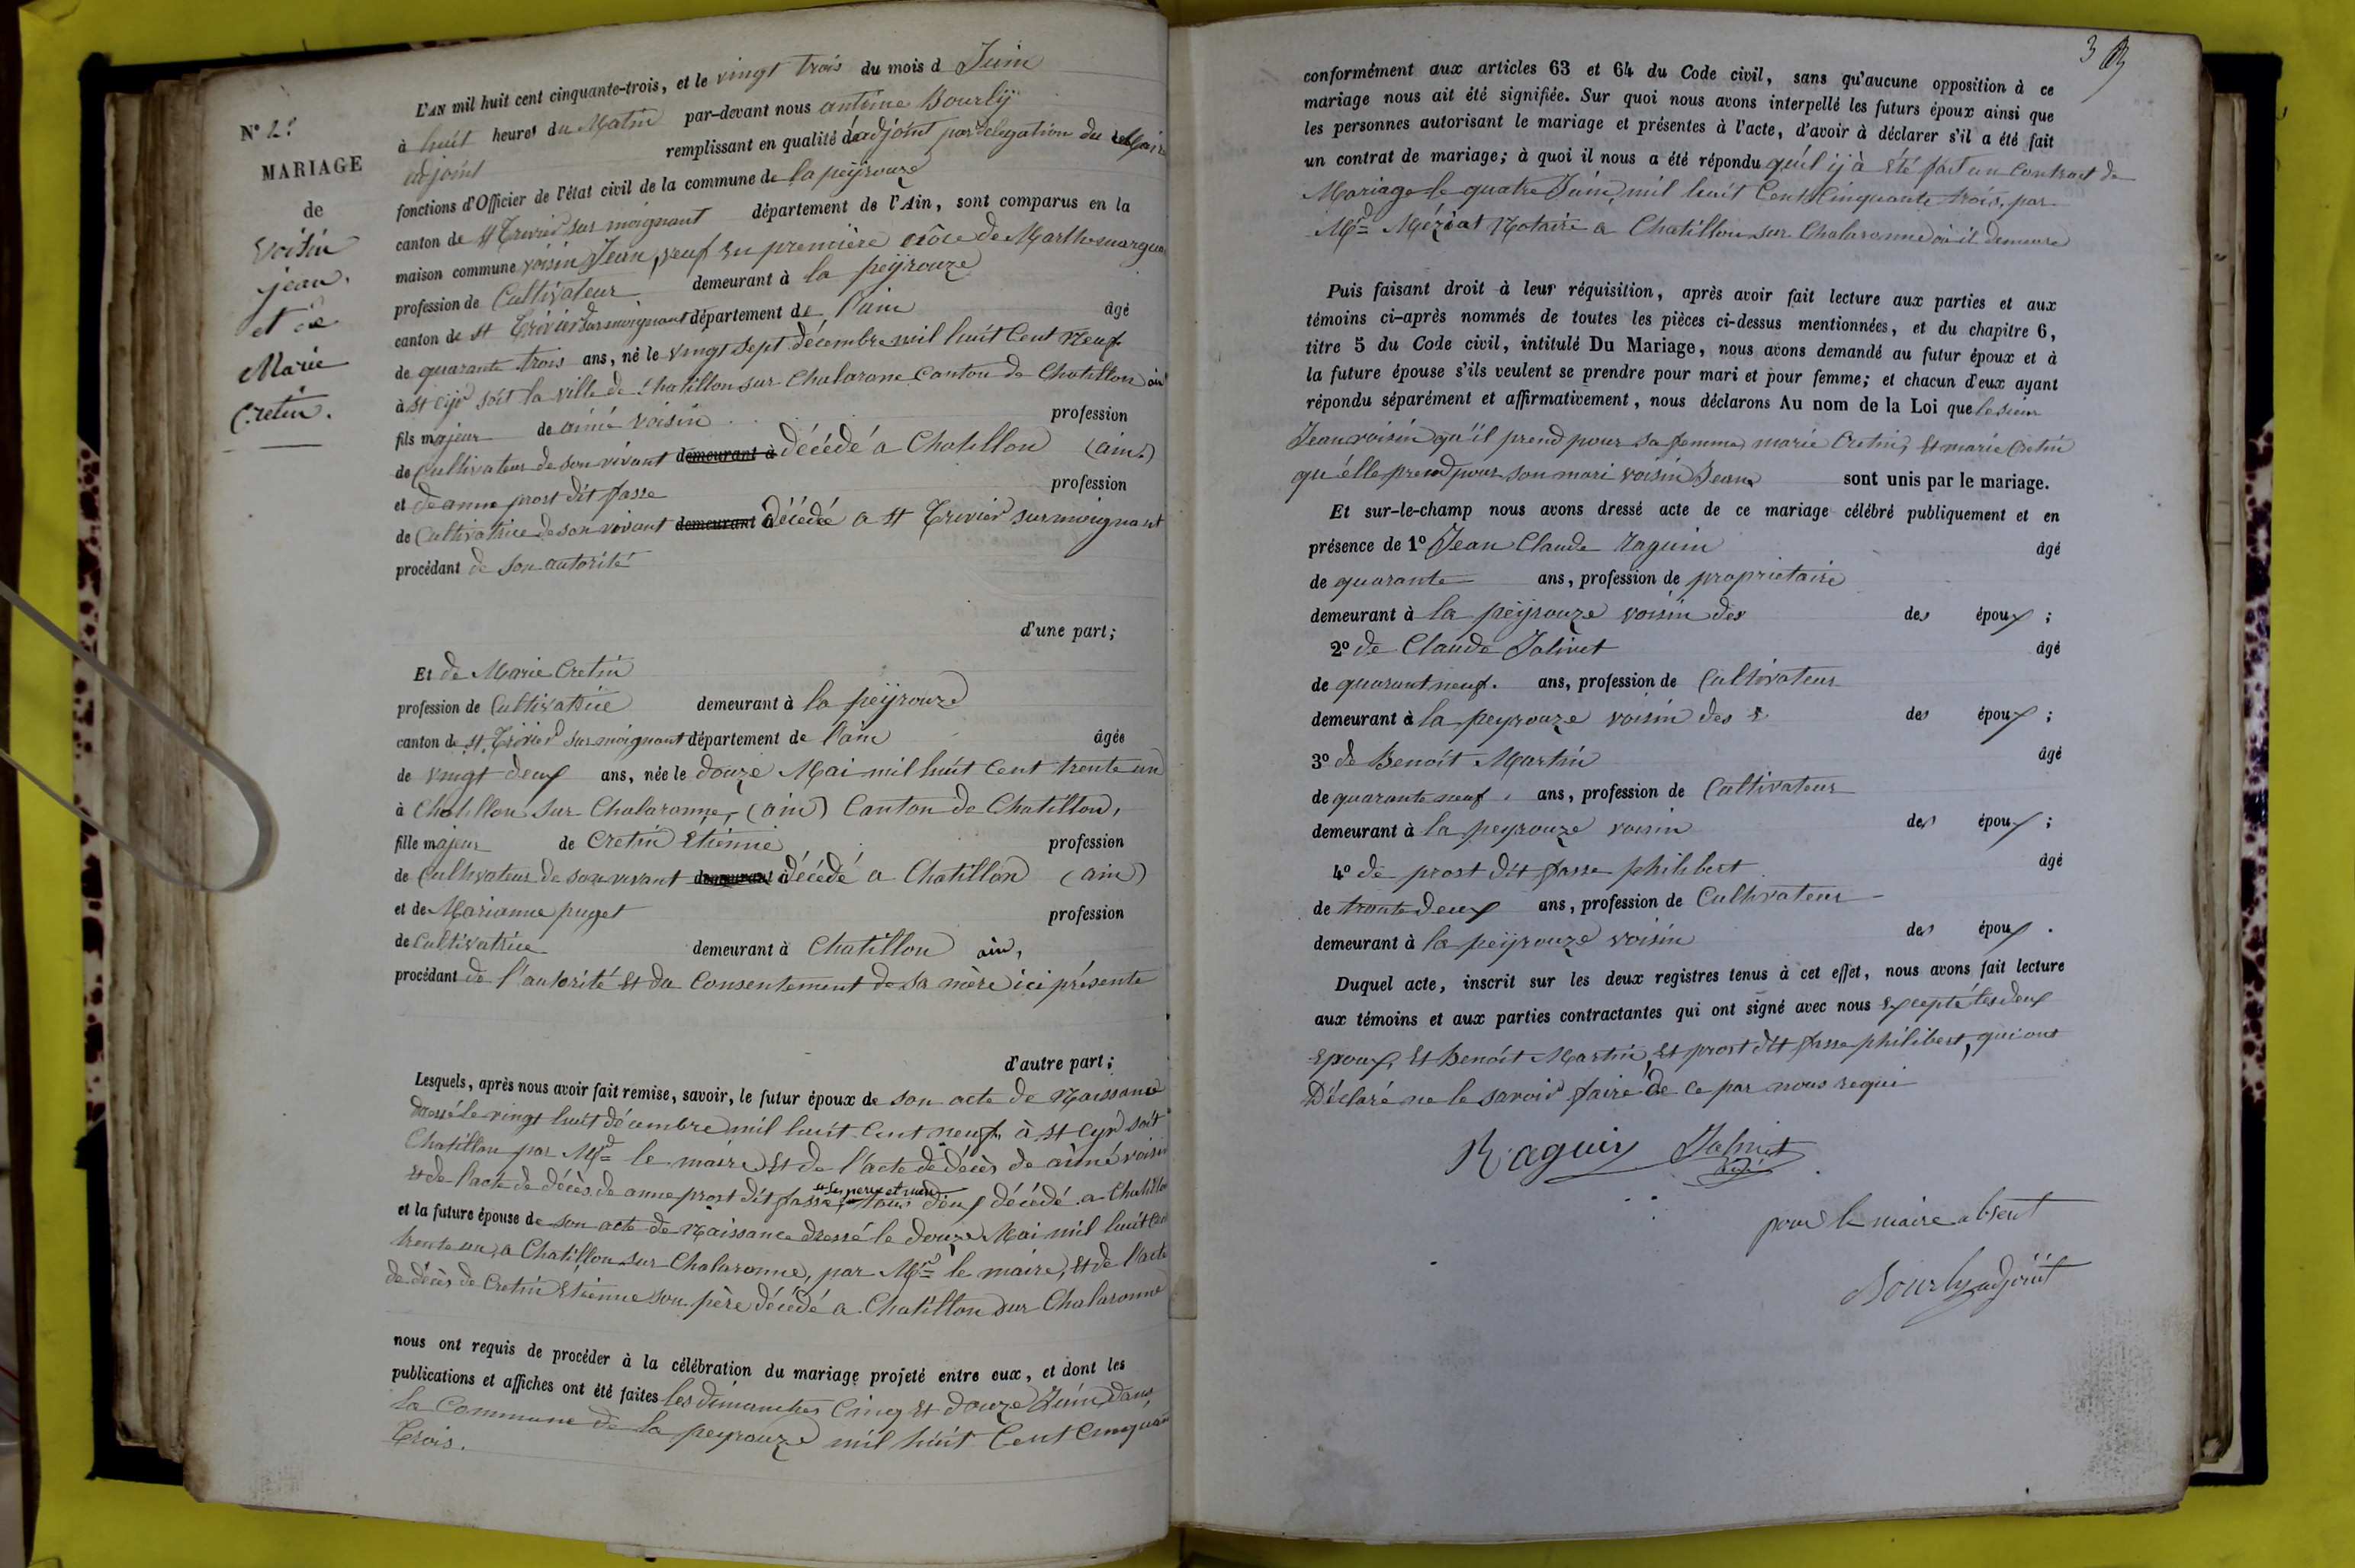 N° 2.
MARIAGE
de
voisin
jean.
et de
Marie
Cretin.
L'AN mil huit cent cinquante-trois, et le vingt trois du mois d Juin
à huit heures du Matin par-devant nous antime Bourly
adjoint remplissant en qualité d'adjoint par délégation du Maire
fonctions d'Officier de l'état civil de la commune de la peÿrouze
canton de St Trivier sur moignant département de l'Ain, sont comparus en la
maison commune voisin Jean, veuf en première nôce de Marthe
profession de Cultivateur demeurant à la peÿrouze
canton de st Trivier sur moignant département de l'ain âgé
de quarante trois ans, né le vingt sept décembre mil huit Cent Neuf
à St Cyr soit la ville de Chatillon sur Chalarone Canton de Chatillon ain
fils majeur de aimé voisin profession
de Cultivateur de son vivant demeurant à décédé a Chatillon (ain.)
et de anne prost dit fasse profession
de Cultivatrice de son vivant demeurant à décédée a st Trivier sur moignant
procédant de son autorité
d'une part;
Et de Marie Cretin
profession de Cultivatrice demeurant à la peÿrouze
canton de st. Trivier sur moignant département de l'ain âgée
de vingt deux ans, née le douze Mai mil huit Cent trente un
à Chatillon sur Chalaronne, (ain) Canton de Chatillon,
fille majeur de Cretin Etienne profession
de Cultivateur de son vivant demeurant à décédé a Chatillon (ain)
et de Marianne puget profession
de Cultivatrice demeurant à Chatillon ain,
procédant de l'autorité et du Consentement de sa mère ici présente
d'autre part;
Lesquels, après nous avoir fait remise, savoir, le futur époux de son acte de Naissance
dressé le vingt huit décembre mil huit Cent neuf, à St Cyr soit
Chatillon par Mr le maire, et de l'acte de décès de aimé voisin
et de l'acte de décès de anne prost dit fasse ses père et mère tous deux décédé a Chatillon
et la future épouse de son acte de Naissance dressé le douze Mai mil huit Cent
trente un, a Chatillon sur Chalaronne, par Mr le maire, et de l'acte
de décès de Cretin Etienne son père décédé a Chatillon sur Chalaronne
nous ont requis de procéder à la célébration du mariage projeté entre eux, et dont les
publications et affiches ont été faites les dimanches Cinq et douze Juin, dans
la Commune de la peyrouze mil huit Cent Cinquante
Trois.
3
conformément aux articles 63 et 64 du Code civil, sans qu'aucune opposition à ce
mariage nous ait été signifiée. Sur quoi nous avons interpellé les futurs époux ainsi que
les personnes autorisant le mariage et présentes à l'acte, d'avoir à déclarer s'il a été fait
un contrat de mariage; à quoi il nous a été répondu qu'il ÿ à été fait un Contract de
Mariage le quatre Juin, mil huit Cent Cinquante trois, par
Mr Méziat Notaire a Chatillon sur Chalaronne où il demeure
Puis faisant droit à leur réquisition, après avoir fait lecture aux parties et aux
témoins ci-après nommés de toutes les pièces ci-dessus mentionnées, et du chapitre 6,
titre 5 du Code civil, intitulé Du Mariage, nous avons demandé au futur époux et à
la future épouse s'ils veulent se prendre pour mari et pour femme; et chacun d'eux ayant
répondu séparément et affirmativement, nous déclarons Au nom de la Loi que le sieur
Jean voisin qu'il prend pour sa femme, marie Cretin, et marie Cretin
qu'élle prend pour son mari voisin Jean, sont unis par le mariage.
Et sur-le-champ nous avons dressé acte de ce mariage célébré publiquement et en
présence de 1° Jean Claude Raguin âgé
de quarante ans, profession de propriétaire
demeurant à la peÿrouze voisin des des époux;
2° de Claude Jolivet âgé
de quarant neuf. ans, profession de Cultivateur
demeurant à la peyrouze voisin des E des époux;
3° de Benoit Martin âgé
de quarante neuf ans, profession de Cultivateur
demeurant à la peyrouze voisin des époux;
4° de prost dit fasse philibert âgé
de trente deux ans, profession de Cultivateur
demeurant à la peÿrouze voisin des époux.
Duquel acte, inscrit sur les deux registres tenus à cet effet, nous avons fait lecture
aux témoins et aux parties contractantes qui ont signé avec nous Excepté les deux
Epoux, et Benoit Martin, et prost dit fasse philibert, qui ont
Déclaré ne le savoir faire de ce par nous requi
Raguin Jolivet
pour le maire absent
Bourly adjoint